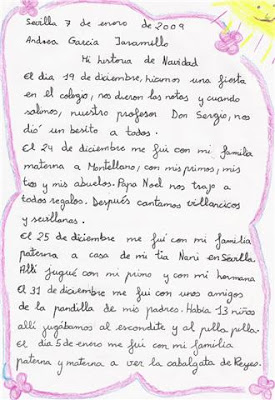 Sevilla 7 de enero de 2009
Andrea García Jaramillo
Mi historia de Navidad
El día 19 de diciembre, hicimos una fiesta
en el colegio, nos dieron las notas y cuando
salimos, nuestro profesor Don Sergio, nos
dió un besito a todos.
El 24 de diciembre me fui con mi familia
materna a Montellano, con mis primos, mis
tíos y mis abuelos. Papa Noel nos trajo a
todos regalos. Después cantamos villancicos
y sevillanas.
El 25 de diciembre me fui con mi familia
paterna a casa de mi tía Nani en Sevilla.
Allí jugué con mi primo y con mi hermana
El 31 de diciembre me fui con unos amigos
de la pandilla de mis padres. Había 13 niños
allí jugábamos al escondite y al pilla pilla.
El día 5 de enero me fui con mi familia
paterna y materna a ver la cabalgata de Reyes.